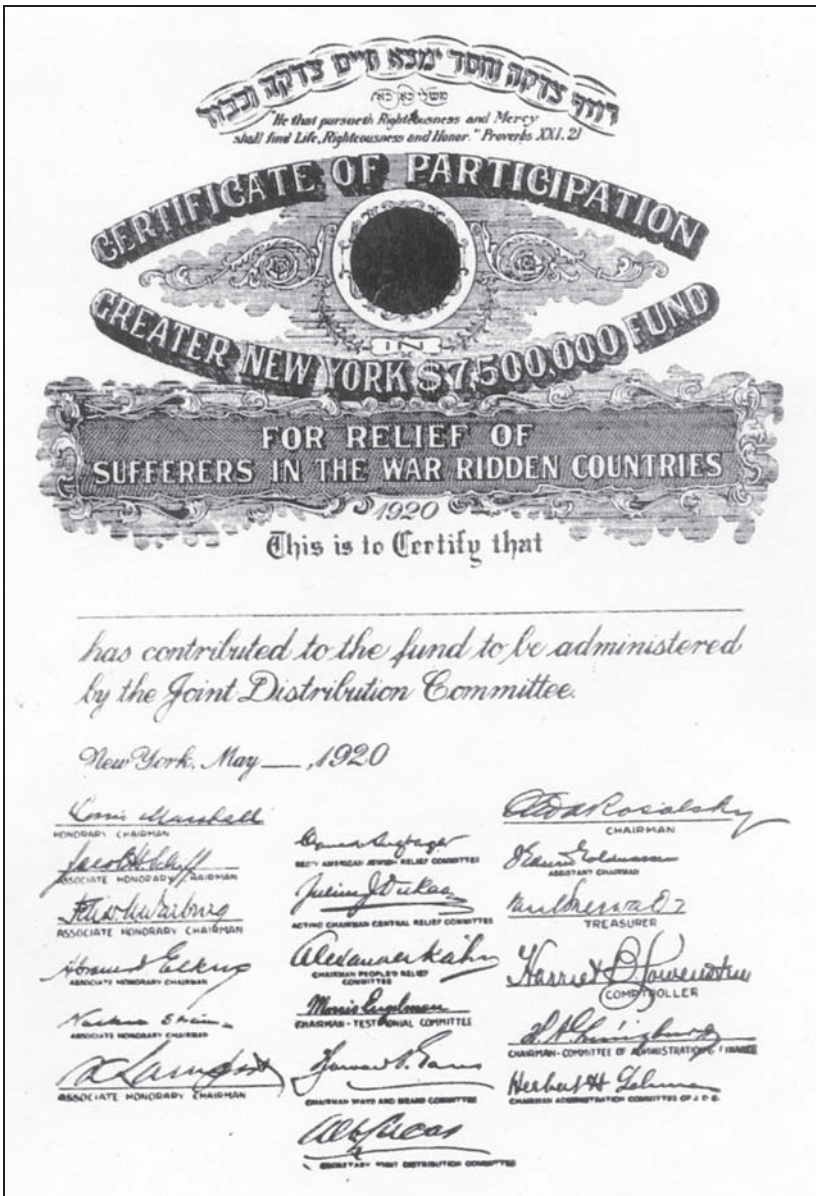 רודף צדקה וחסד ימצא חיים צדקה וכבוד
משלי כא כא
"He that pursueth Righteousness and Mercy
shall find Life, Righteousness and Honor." Proverbs XXI. 21
CERTIFICATE OF PARTICIPATION
IN
GREATER NEW YORK $7,500,000 FUND
FOR RELIEF OF
SUFFERERS IN THE WAR RIDDEN COUNTRIES
1920
This is to Certify that
has contributed to the fund to be administered
by the Joint Distribution Committee.
New York, May ___, 1920
Louis Marshall
HONORARY CHAIRMAN
Jacob H. Schiff
ASSOCIATE HONORARY CHAIRMAN
Felix M. Warburg
ASSOCIATE HONORARY CHAIRMAN
Abram I. Elkus
ASSOCIATE HONORARY CHAIRMAN
Nathan Straus
ASSOCIATE HONORARY CHAIRMAN
ASSOCIATE HONORARY CHAIRMAN
SEC'Y AMERICAN JEWISH RELIEF COMMITTEE
Julius J. Dukas
ACTING CHAIRMAN CENTRAL RELIEF COMMITTEE
Alexander Kahn
CHAIRMAN PEOPLE'S RELIEF
COMMITTEE
Morris Engelman
CHAIRMAN - TESTIMONIAL COMMITTEE
CHAIRMAN WAYS AND MEANS COMMITTEE
Alb Lucas
SECRETARY JOINT DISTRIBUTION COMMITTEE
Otto A Rosalsky
CHAIRMAN
ASSISTANT CHAIRMAN
TREASURER
Harriet B. Lowenstein
COMPTROLLER
CHAIRMAN - COMMITTEE OF ADMINISTRATION & FINANCE
Herbert H Lehman
CHAIRMAN ADMINISTRATION COMMITTEE OF J. D. C.